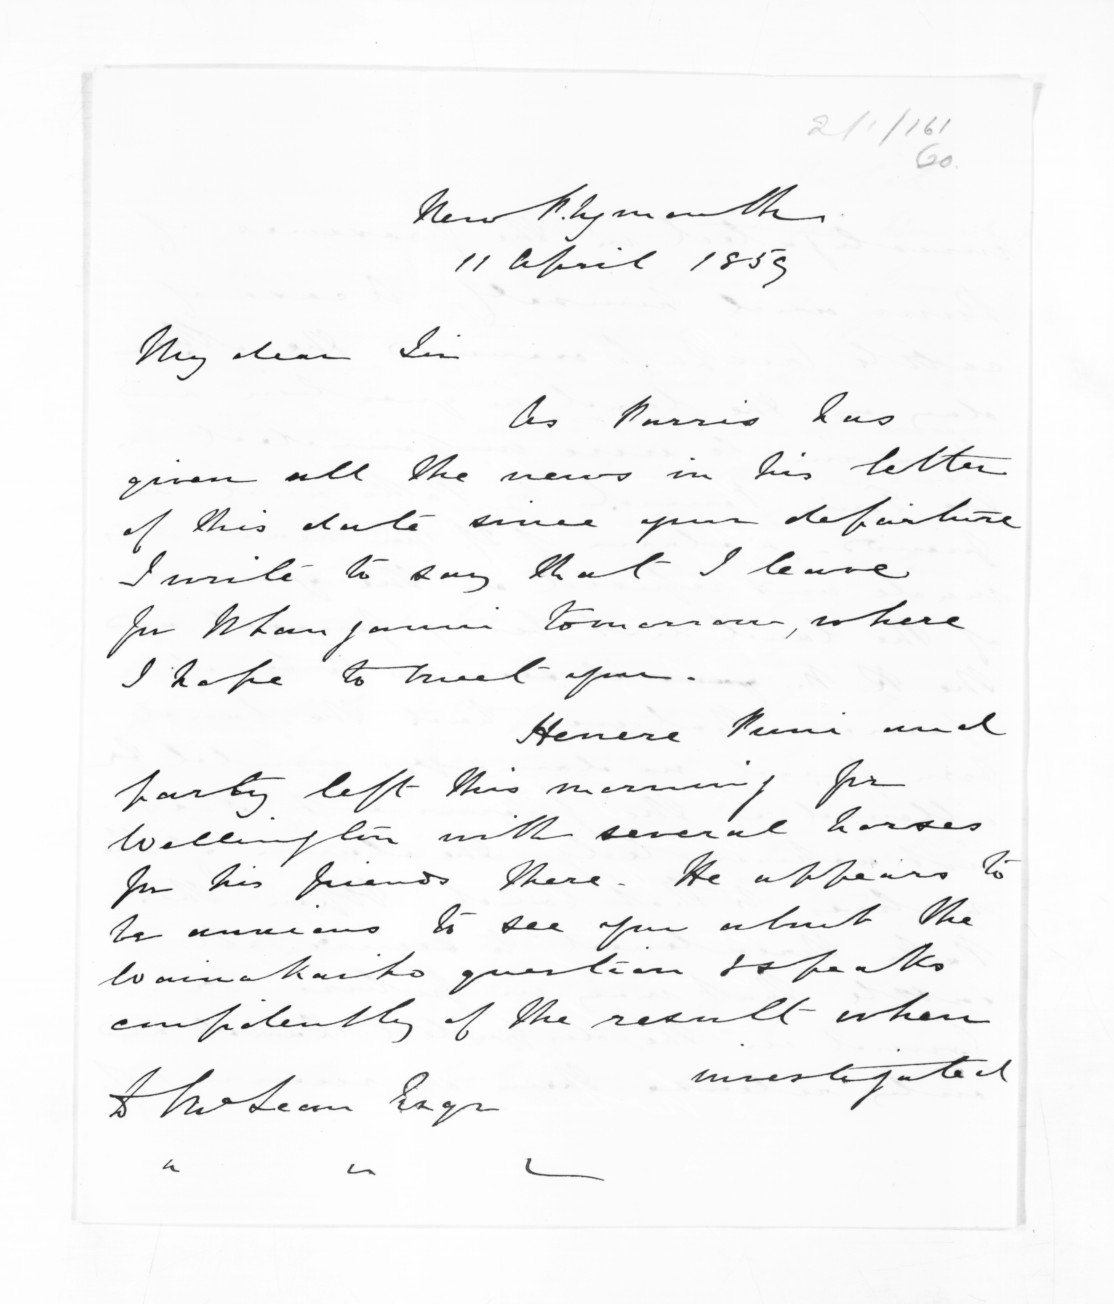 2/1/161
60.
New Plymouth
11 April 1859
My dear Sir
As Parris has
given all the news in his letter
of this date since your departure
I write to say that I leave
for Whanganui tomorrow, where
I hope to meet you.
Henere Puni and
party left this morning for
Wellington with several horses
for his friends there. He appears to
be anxious to see you about the
Waiwakaiho question & speaks
confidently of the result when
investigated
D McLean Esqr
" " "